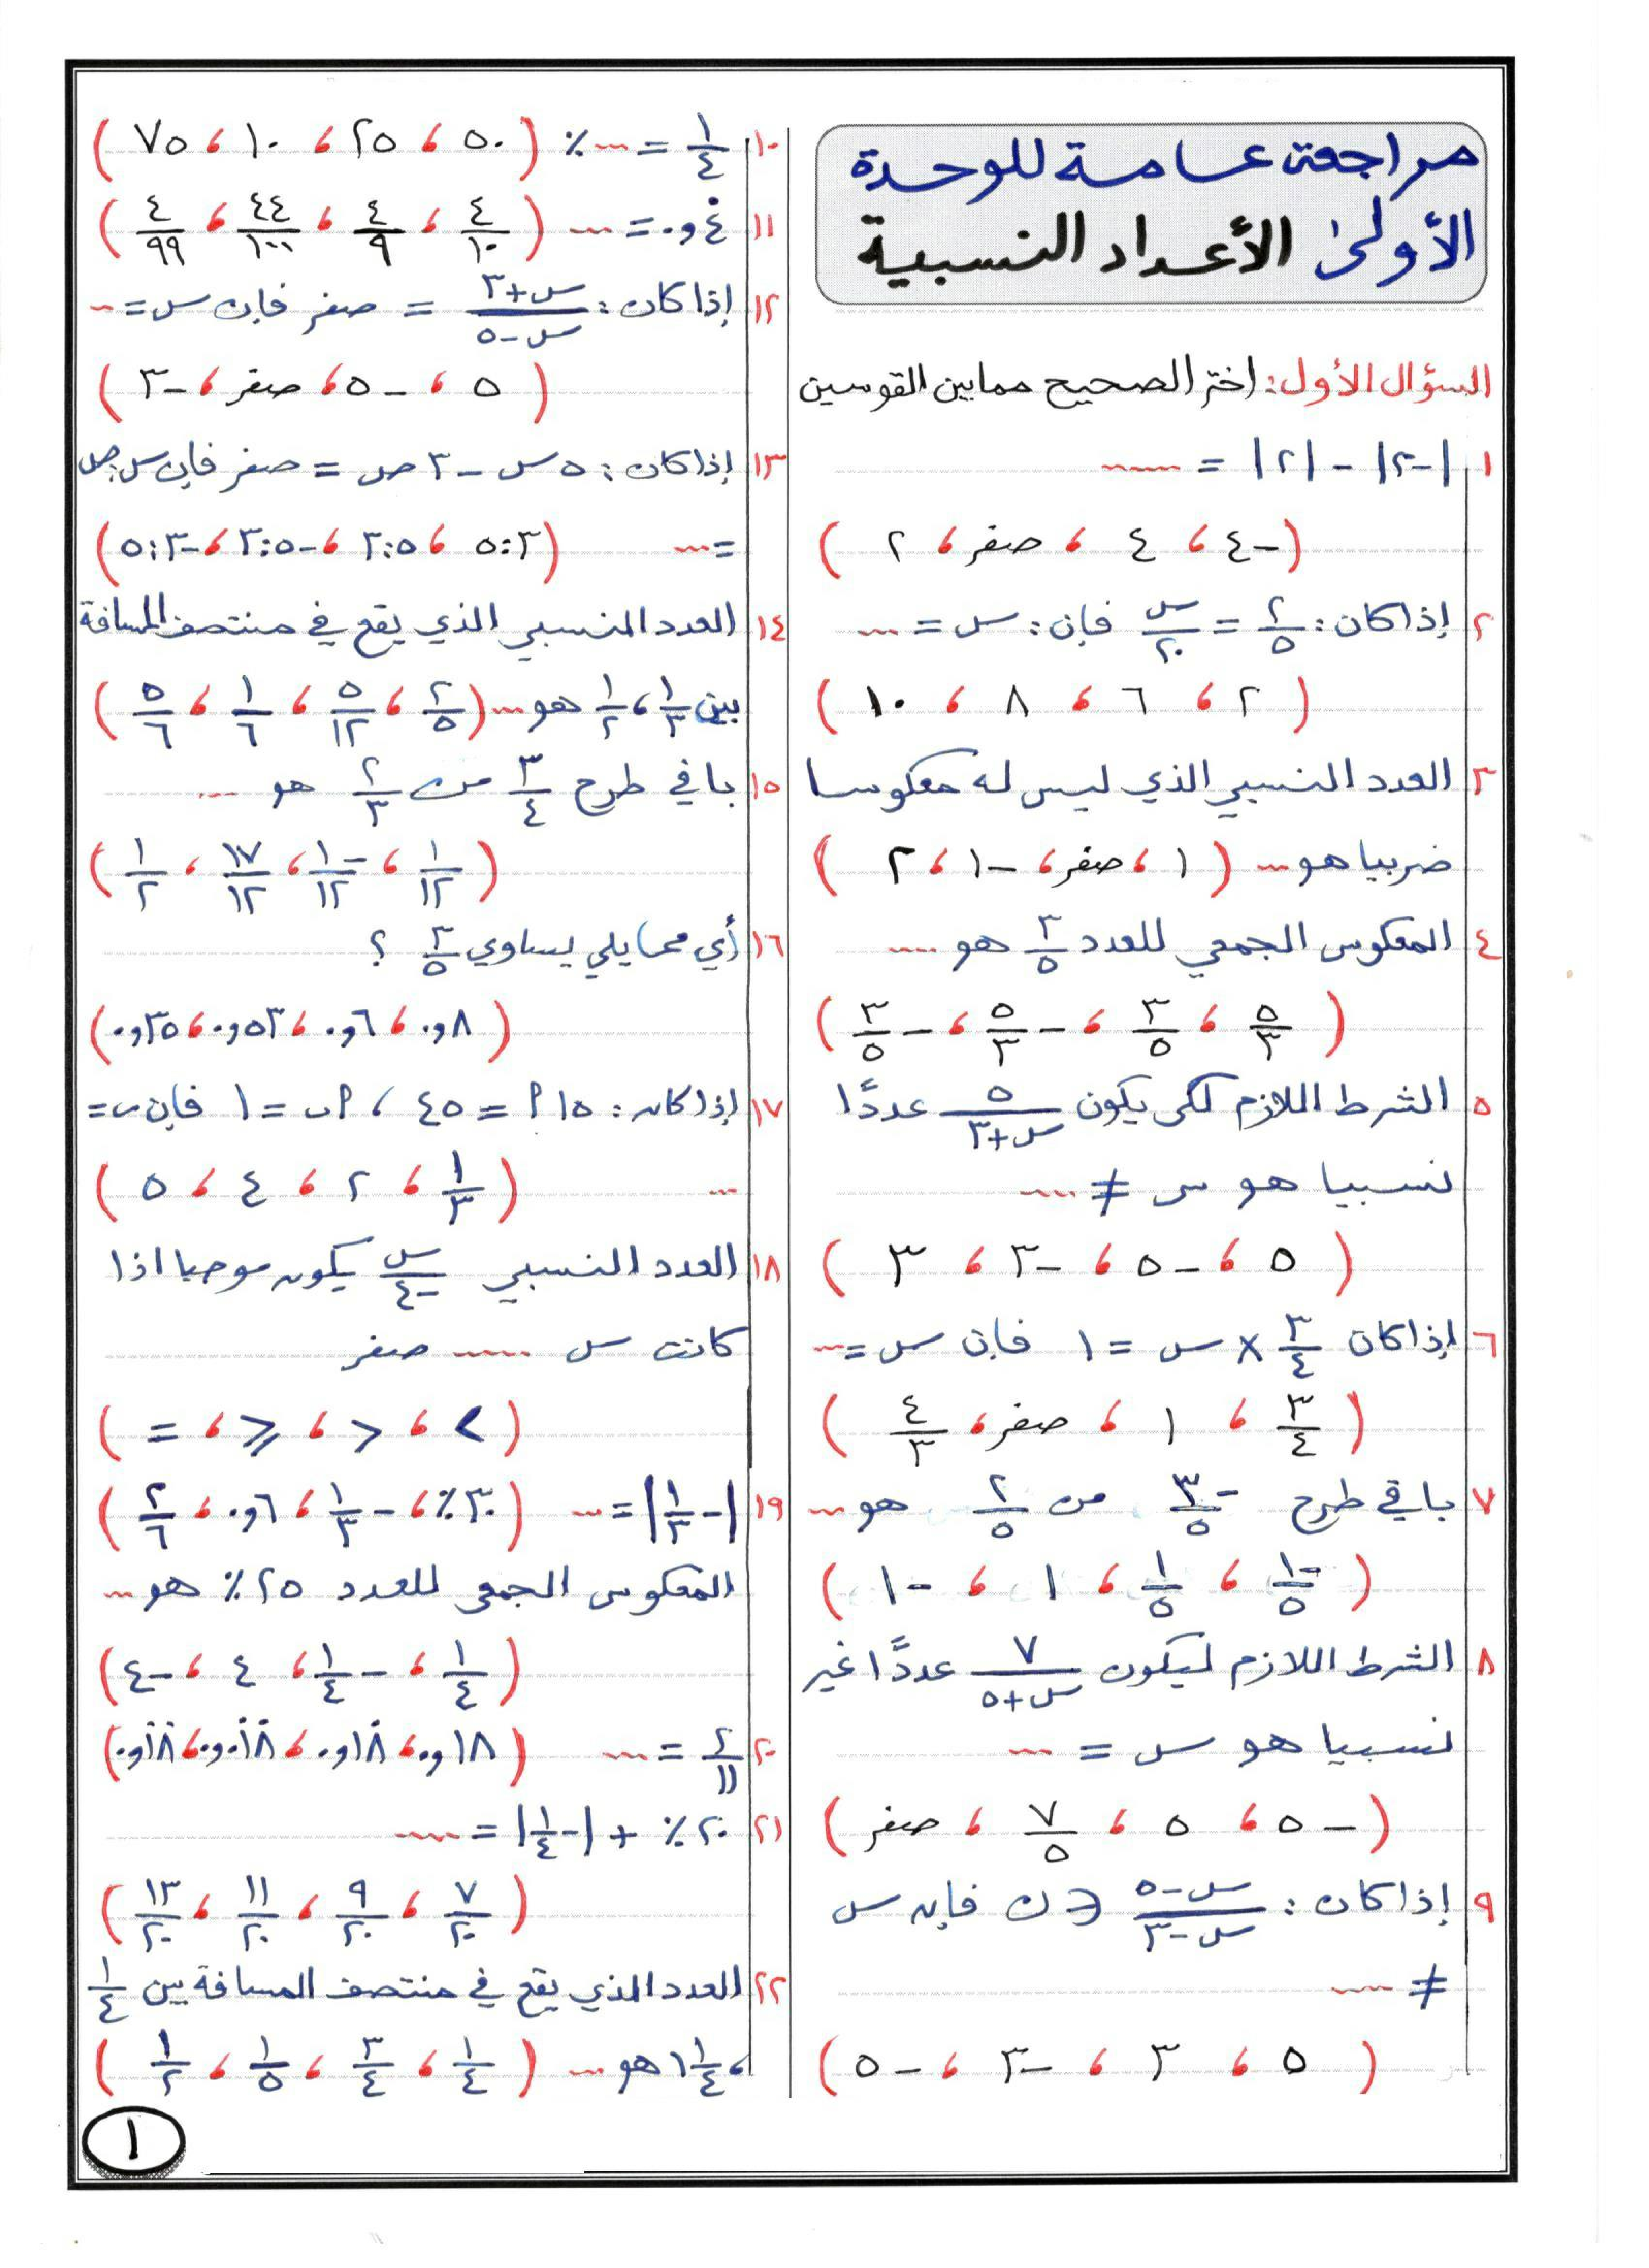 مراجعة عامة للوحدة
الأولى الأعداد النسبية
السؤال الأول: اختر الصحيح مما بين القوسين
١ |-٢| - |٢| = ......
( -٤ ، ٤ ، صفر ، ٢ )
٢ إذا كان: ٢/٥ = س/٢٠ فإن: س = ....
( ٢ ، ٦ ، ٨ ، ١٠ )
٣ العدد النسبي الذي ليس له معكوسا
ضربيا هو ... ( ١ ، صفر ، -١ ، ٢ )
٤ المعكوس الجمعي للعدد ٣/٥ هو ....
( ٥/٣ ، ٣/٥ ، -٥/٣ ، -٣/٥ )
٥ الشرط اللازم لكى يكون ٥/س+٣ عددًا
نسبيا هو س ≠ ....
( ٥ ، -٥ ، -٣ ، ٣ )
٦ إذا كان ٣/٤ × س = ١ فإن س = ...
( ٣/٤ ، ١ ، صفر ، ٤/٣ )
٧ باقي طرح -٣/٥ من ٢/٥ هو ...
( -١/٥ ، ١/٥ ، ١ ، -١ )
٨ الشرط اللازم ليكون ٧/س+٥ عددًا غير
نسبيا هو س = ...
( -٥ ، ٥ ، ٧/٥ ، صفر )
٩ إذا كان: س-٥/س-٣ ∈ ن فإن س
≠ ....
( ٥ ، ٣ ، -٣ ، -٥ )
١٠ ١/٤ = ... ٪ ( ٥٠ ، ٢٥ ، ١٠ ، ٧٥ )
١١ ٠و٤̇ = ... ( ٤/١٠ ، ٤/٩ ، ٤٤/١٠٠ ، ٤/٩٩ )
١٢ إذا كان: س+٣/س-٥ = صفر فإن س = ...
( ٥ ، -٥ ، صفر ، -٣ )
١٣ إذا كان: ٥س - ٣ص = صفر فإن س:ص
= ... ( ٥:٣ ، ٣:٥ ، -٣:٥ ، -٥:٣ )
١٤ العدد النسبي الذي يقع في منتصف المسافة
بين ١/٣ ، ١/٢ هو ... ( ٢/٥ ، ٥/١٢ ، ١/٦ ، ٥/٦ )
١٥ باقي طرح ٣/٤ من ٢/٣ هو ...
( ١/١٢ ، -١/١٢ ، ١٧/١٢ ، ١/٢ )
١٦ أي مما يلي يساوي ٣/٥ ؟
( ٠و٨ ، ٠و٦ ، ٠و٥٣ ، ٠و٣٥ )
١٧ إذا كان: ١٥ أ = ٤٥ ، أب = ١ فإن ب =
... ( ١/٣ ، ٢ ، ٤ ، ٥ )
١٨ العدد النسبي س/-٤ يكون موجبا اذا
كانت س .... صفر
( > ، < ، ⩾ ، = )
١٩ |-١/٣| = ... ( ٣٠٪ ، -١/٣ ، ٠و٦ ، ٢/٦ )
المعكوس الجمعي للعدد ٢٥٪ هو ...
( ١/٤ ، -١/٤ ، ٤ ، -٤ )
٢٠ ٢/١١ = ... ( ٠و١٨ ، ٠و١٨̇ ، ٠و٠١̇٨̇ ، ٠و١̇٨̇ )
٢١ ٢٠٪ + |-١/٤| = ....
( ٧/٢٠ ، ٩/٢٠ ، ١١/٢٠ ، ١٣/٢٠ )
٢٢ العدد الذي يقع في منتصف المسافة بين ١/٤
، ١ ١/٤ هو ... ( ١/٤ ، ٣/٤ ، ١/٥ ، ١/٢ )
١